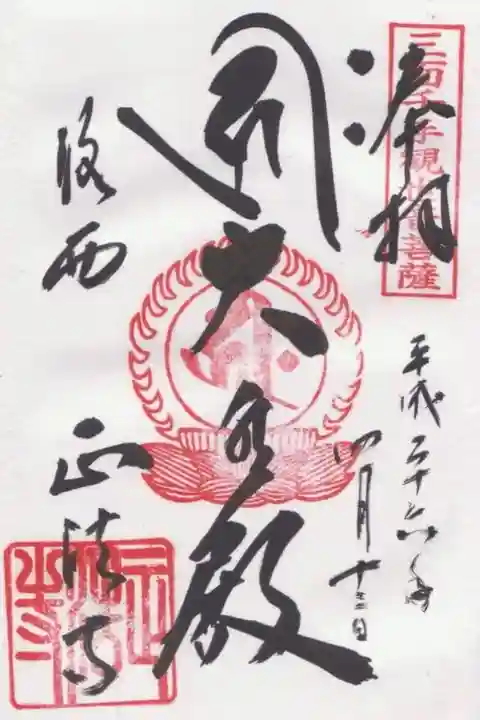 奉拝
三面千手観世音菩薩
平成二十六年
四月十三日
大悲殿
洛西
正法寺